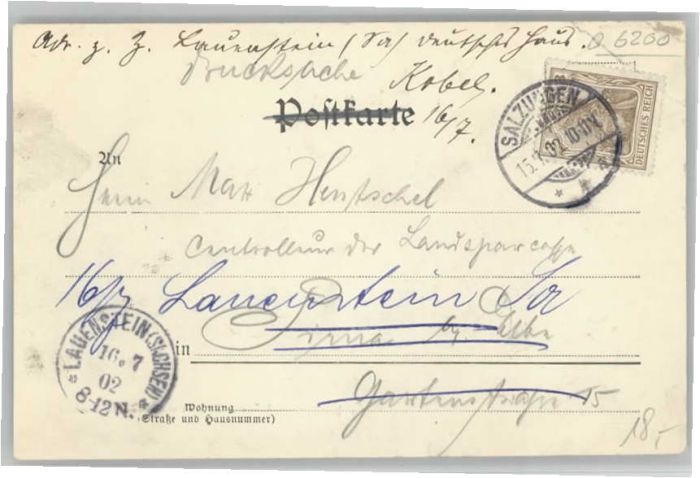 Adr. z. Z. Lauenstein (Sa) deutsches Haus. 6200
Drucksache Kobel.
Postkarte 16/7.
SALZUNGEN
15.7.02 10-11V.
DEUTSCHES REICH
An
Herrn Max Hentschel
Controlleur der Landsparcasse
16/7 Lauenstein Sa
in Pirna Elbe
LAUENSTEIN (SACHSEN)
16.7
02
8-12N.
Gartenstraße 15
Wohnung
(Straße und Hausnummer)
18,-